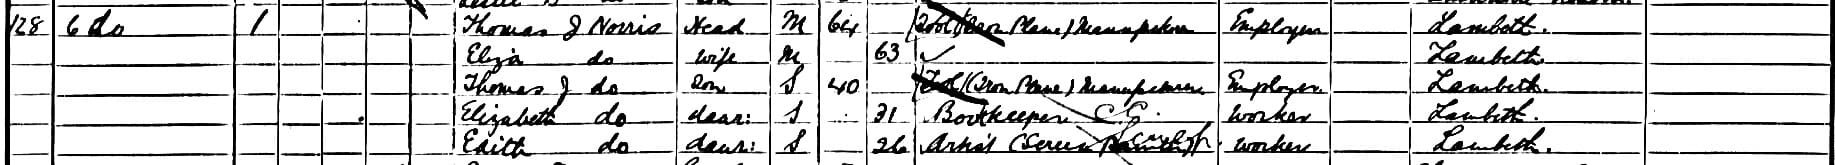 128 6 do 1 Thomas J Norris Head M 64 Tool (Iron Plane) Manufacturer Employer Lambeth.
Eliza do wife M 63 ✓ Lambeth
Thomas J do Son S 40 Tool (Iron Plane) Manufacturer Employer Lambeth.
Elizabeth do daur: S 31 Bookkeeper worker Lambeth.
Edith do daur: S 26 Artist (Screen worker Lambeth.